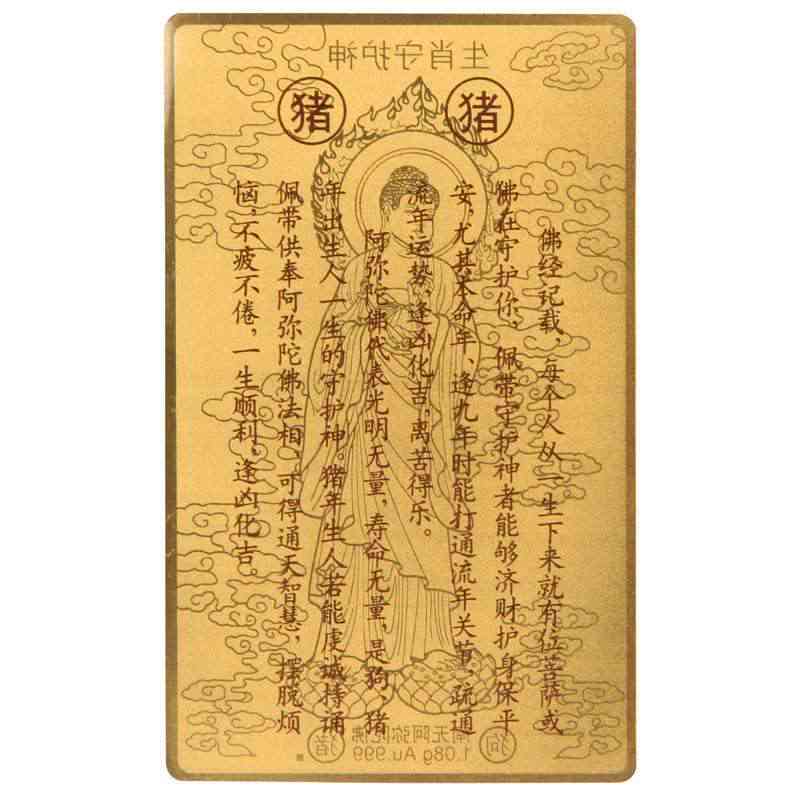 生肖守护神
猪 猪
佛经记载，每个人从一生下来就有位菩萨或
佛在守护你，佩带守护神者能够济财护身保平
安，尤其本命年、逢九年时能打通流年关节，疏通
流年运势，逢凶化吉，离苦得乐。
阿弥陀佛代表光明无量，寿命无量，是狗、猪
年出生人一生的守护神。猪年生人若能虔诚持诵
佩带供奉阿弥陀佛法相，可得通天智慧，摆脱烦
恼，不疲不倦，一生顺利，逢凶化吉。
狗 南无阿弥陀佛 猪
1.08g Au.999